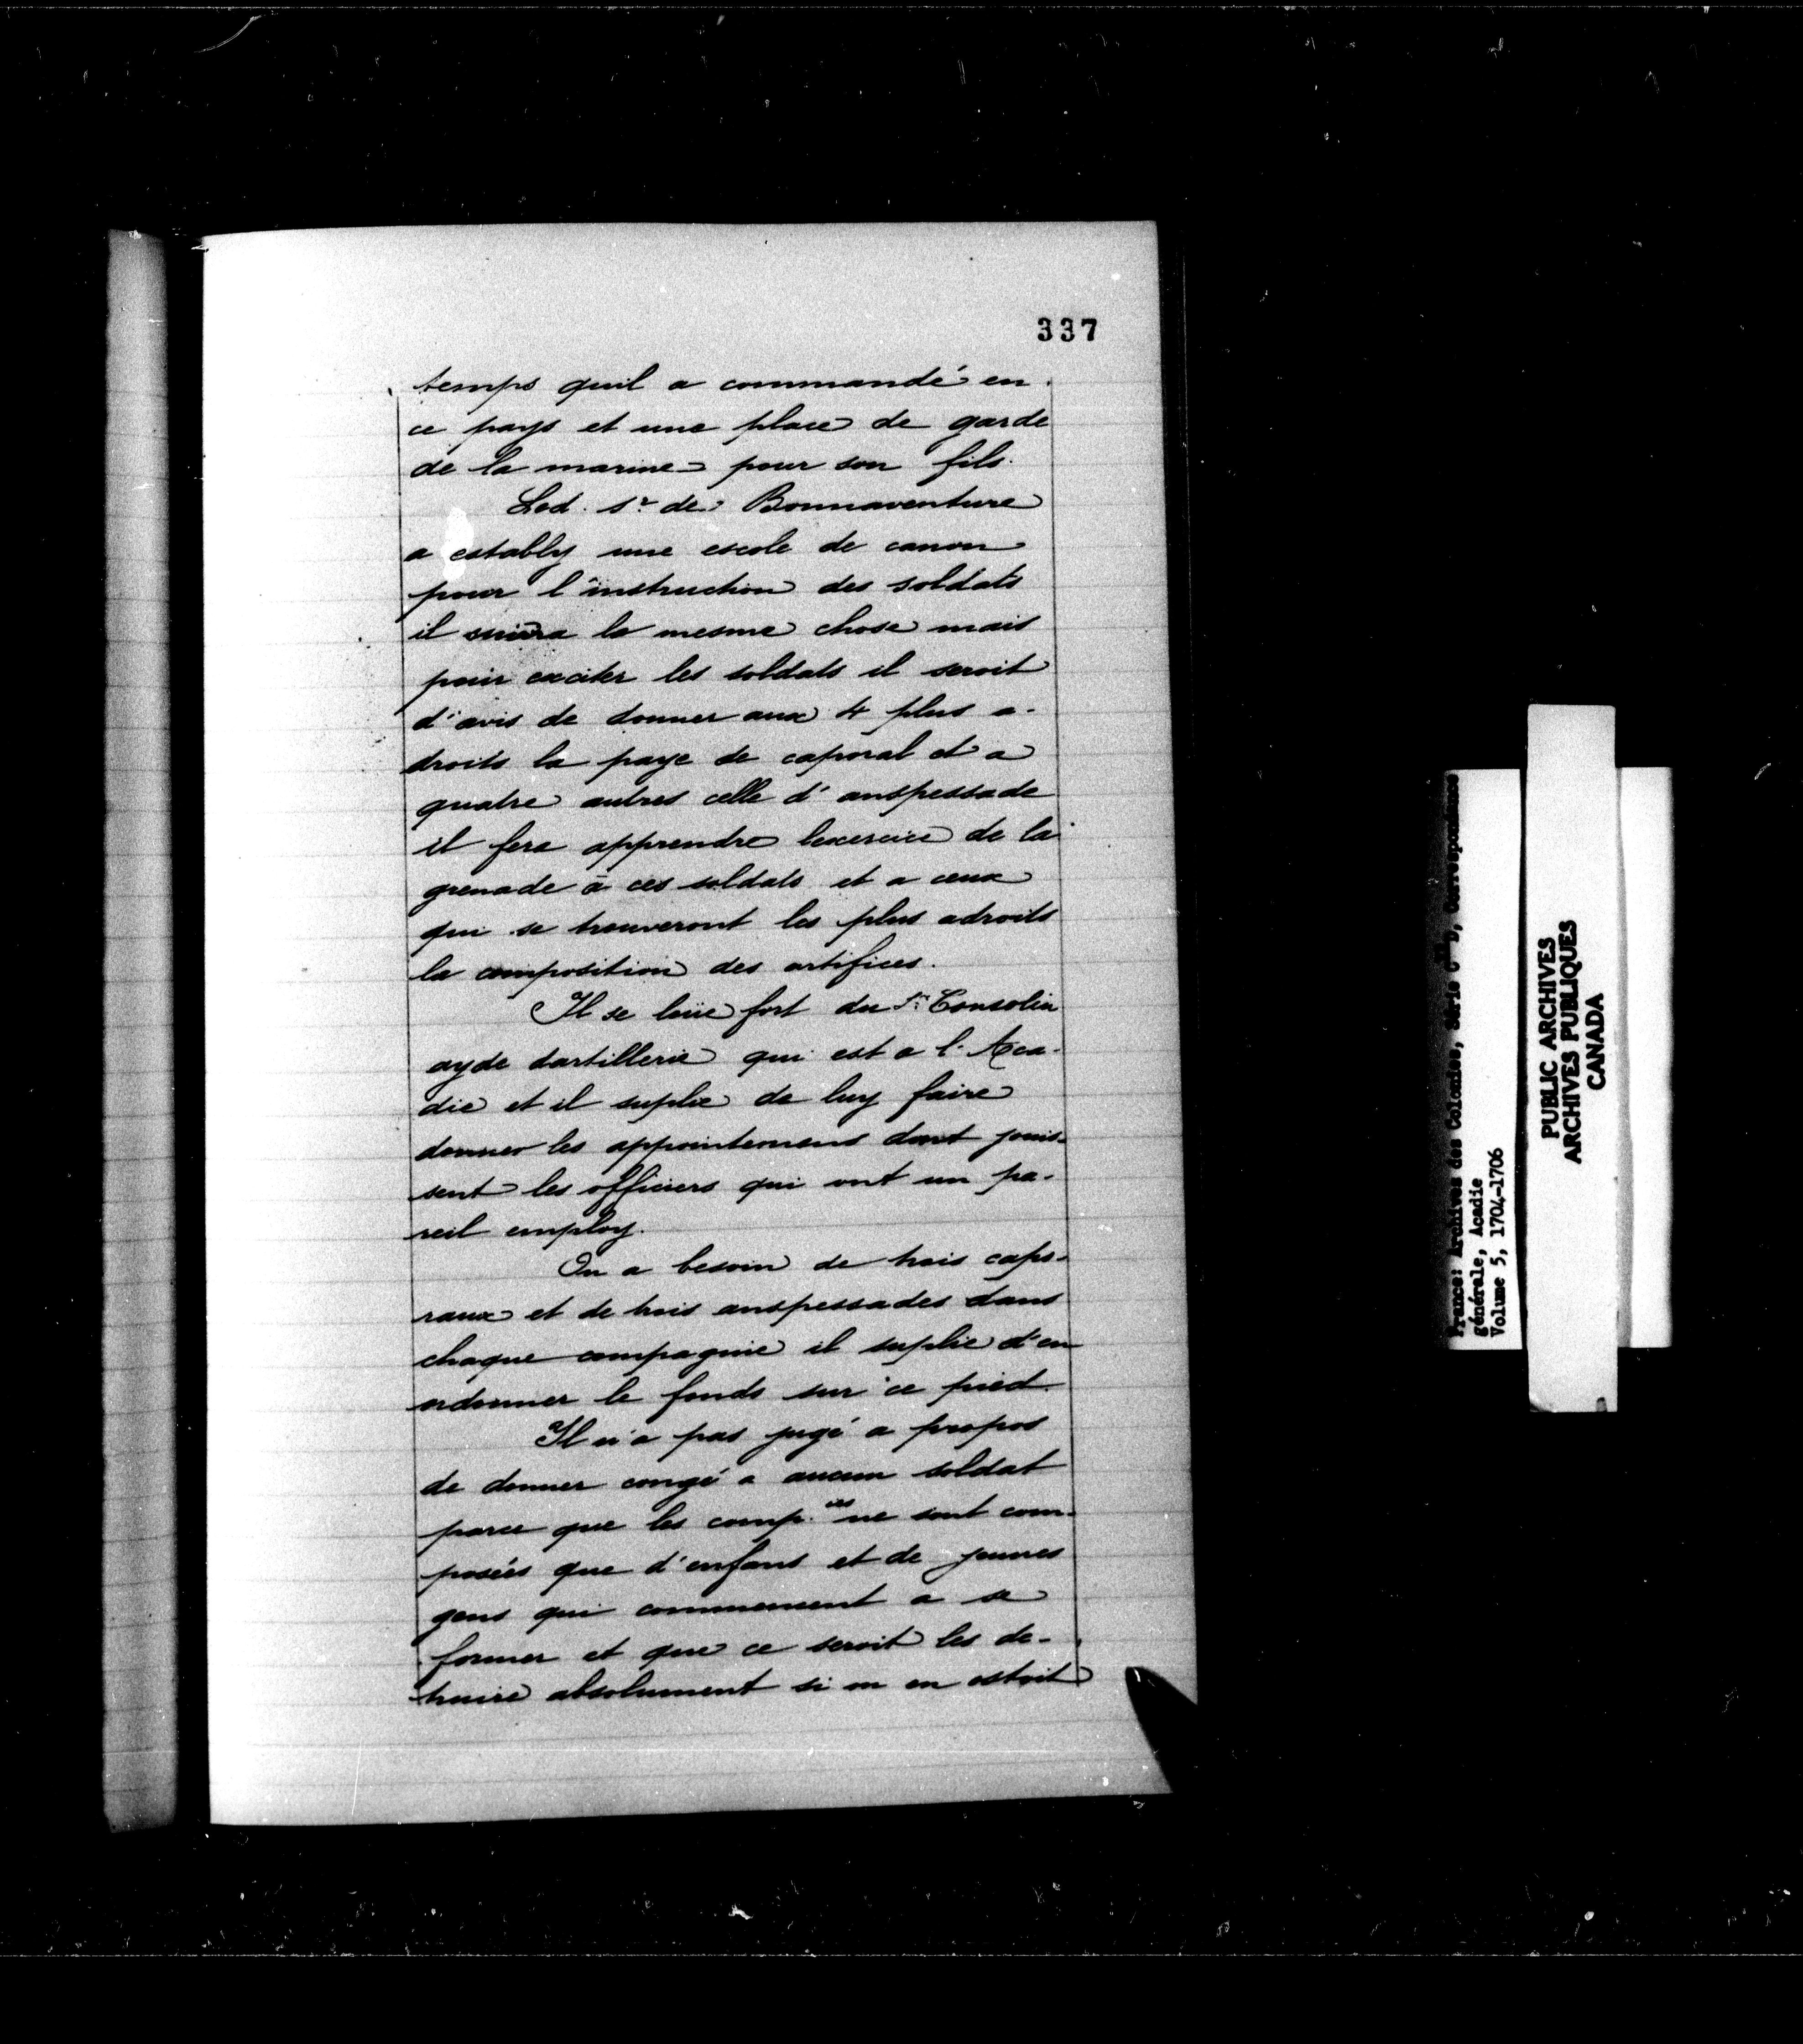 337
temps quil a commandé en
ce pays et une place de garde
de la marine pour son fils.
Led. sr de Bonnaventure
a estably une escole de canon
pour l'instruction des soldats
il suivra la mesme chose mais
pour exciter les soldats il seroit
d'avis de donner aux 4 plus a-
droits la paye de caporal et a
quatre autres celle d'anspessade
il fera apprendre lexercice de la
grenade à ces soldats et a ceux
qui se trouveront les plus adroits
la composition des artifices.
Il se loüe fort du Sr. Consolin
ayde dartillerie qui est a l'Aca-
die et il suplie de luy faire
donner les appointemens dont jouis-
sent les officiers qui ont un pa-
reil employ.
On a besoin de trois capo-
raux et de trois anspessades dans
chaque compagnie il suplie d'en
ordonner le fonds sur ce pied.
Il n'a pas jugé a propos
de donner congé a aucun soldat
parce que les comp.ies ne sont com-
posées que d'enfans et de jeunes
gens qui commencent a se
former et que ce seroit les de-
truire absolument si on en ostoit
France: Archives des Colonies, Série C11D, Correspondance
générale, Acadie
Volume 5, 1704-1706
PUBLIC ARCHIVES
ARCHIVES PUBLIQUES
CANADA